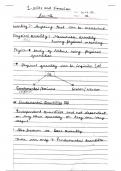 Units and Dimension
Quantity : Anything that can be measured
Physical Quantity : Measurable Quantity
having physical meaning
Physics = study of Nature using physical
quantities
Physical quantity can be
Fundamental/
Scalar/Vector
Fundamental Quantities
Independent Quantities and not dependent
on any other quantity or
also known as Base Quantity
There are only 7 Fundamental Quantities